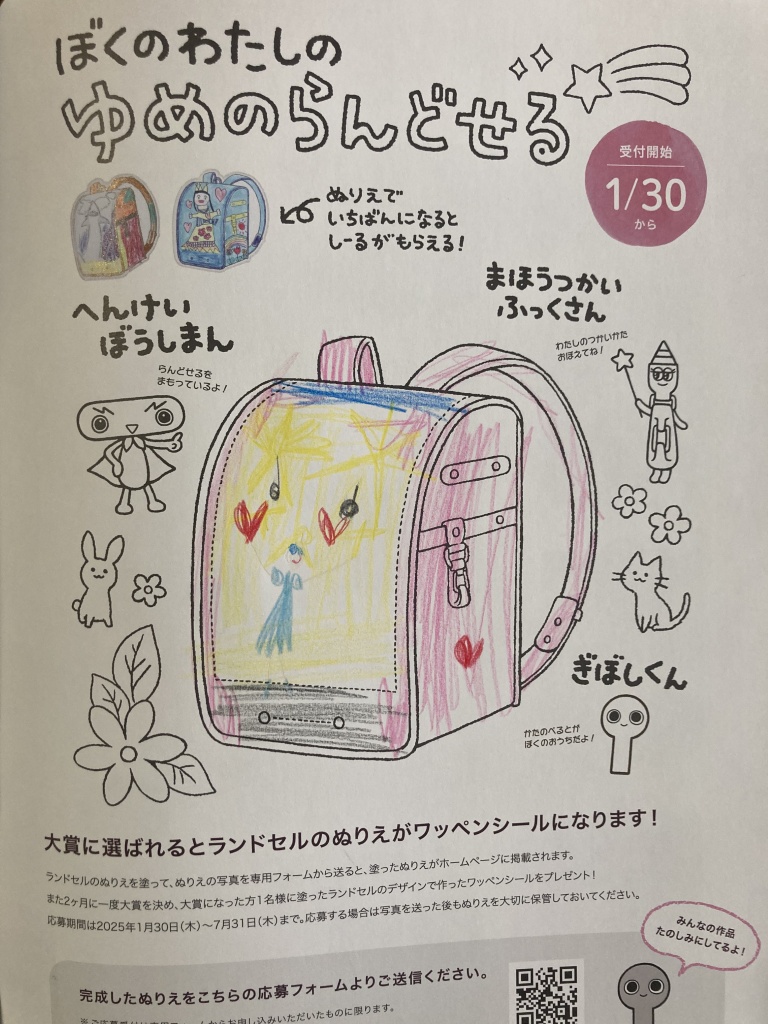 ぼくのわたしの
ゆめのらんどせる
受付開始
1/30
から
ぬりえで
いちばんになると
しーるがもらえる!
へんけい
ぼうしまん
らんどせるを
まもっているよ!
まほうつかい
ふっくさん
わたしのつかいかた
おぼえてね!
ぎぼしくん
かたのべるとが
ぼくのおうちだよ!
大賞に選ばれるとランドセルのぬりえがワッペンシールになります!
ランドセルのぬりえを塗って、ぬりえの写真を専用フォームから送ると、塗ったぬりえがホームページに掲載されます。
また2ヶ月に一度大賞を決め、大賞になった方1名様に塗ったランドセルのデザインで作ったワッペンシールをプレゼント!
応募期間は2025年1月30日(木)~7月31日(木)まで。応募する場合は写真を送った後もぬりえを大切に保管しておいてください。
みんなの作品
たのしみにしてるよ!
完成したぬりえをこちらの応募フォームよりご送信ください。